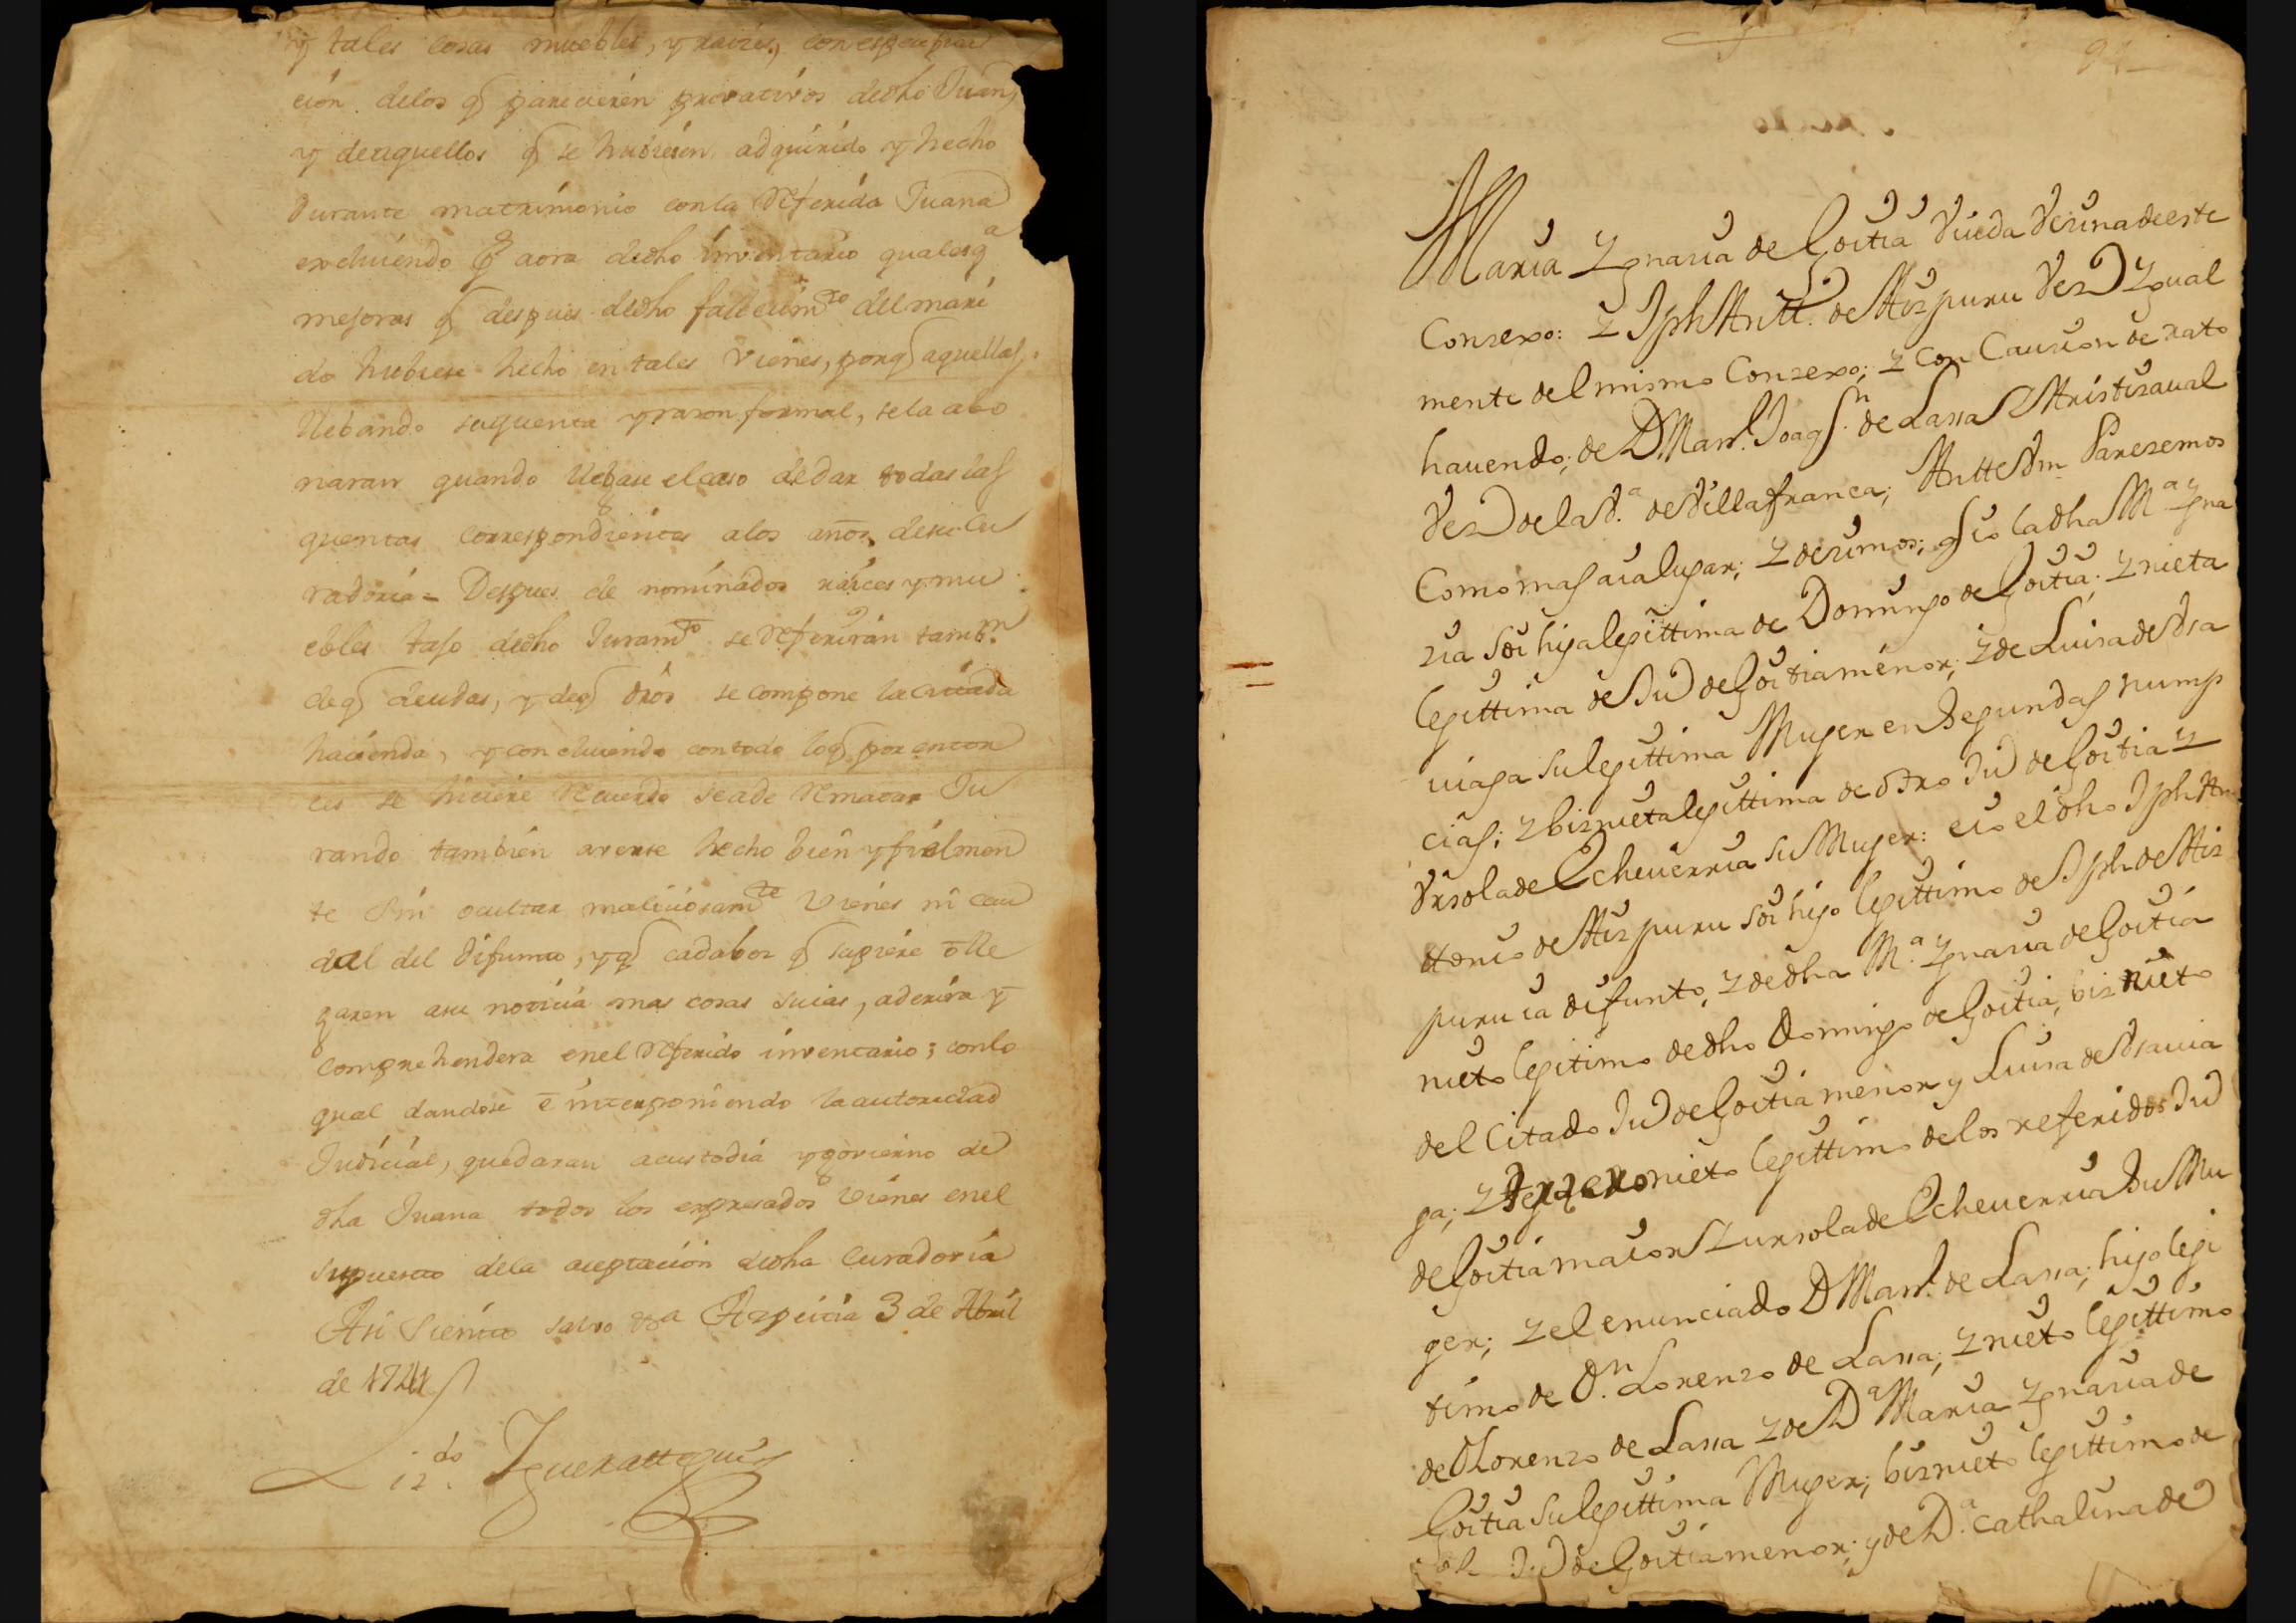 y tales cosas muebles, y raizes, con espesifica
cion delos q̃ parecieren privativos dedho Juan,
y deaquellos q̃ se hubiesen adquirido y hecho
durante matrimonio conla referida Juana
excluiendo pr aora dedho imventario qualesqa
mejoras q̃ despues dedho fallecimto del mari
do hubiese hecho en tales vienes, porq̃ aquellas
llebando suquenta yrazon formal, sela abo
naran quando llegase elcaso dedar todas las
quentas correspondientes alos años desu cu
radoria = Despues de nominados raices ymu
ebles baso dedho Juramto se referiràn tambn
deq̃ deudas, y deq̃ drõs se compone lacitada
hacienda, y concluiendo contodo loq̃ por enton
ces se hiciere recuerdo seade rematar Ju
rando tambien averse hecho bien yfielmen
te sin ocultar maliciosamte vienes ni cau
dal del difunto, yq̃ cadabez q̃ supiere ò lle
garen asu noticia mas cosas suias, aderira y
comprehendera enel referido inventario; conlo
qual dandose è interponiendo laautoridad
Judicial, quedaran acustodia ygovierno de
dha Juana todos los expresados vienes enel
supuesto dela aceptacion dedha Curadoria
Asi siento salvo &a Azpeitia 3 de Abril
de 1741
Licdo. Ygueratteguis
94
Maria Ygnacia de Goitia Viuda Vecina deeste
Conzexo: y Jph Antto. de Aizpuru Vezo ygual
mente del mismo Conzexo; y con Caucion de rato
havendo; de D. Manl. Joaqn. de Lassa y Aristizaval
Vezo dela Va. de Villafranca; Antte Vm Parezemos
Como mas aia lugar; y dezimos; q̃ io la dha Ma Ygna
zia soi hija legittima de Domingo de Goitia; y nieta
legittima de Juo de Goitia menor; y de Luisa de Vsa
viaga su legittima Muger en Segundas nump
cias; y bisnieta legittima de otro Juo de Goitia y
Vrsola de Echeverria su Muger: e io el dho Jph An
ttonio de Aizpuru soi hijo legittimo de Jph de Aiz
puru ia difunto, y de dha Ma. Ygnacia de Goitia
nieto legitimo de dho Domingo de Goitia, bisnieto
del Citado Juo de Goitia menor y Luisa de Vsavia
ga; y terzeronieto legittimo delos referidos Juo
de Goitia maior y Vrsola de Echeverria Su Mu
ger; y el enunciado D Manl. de Lassa; hijo legi
timo de Dn. Lorenzo de Lassa; y nieto legittimo
de D Lorenzo de Lassa y de Da Maria Ygnacia de
Goitia su legittima Muger; bisnieto legittimo de
Juo de Goitia menor; y de Da. Cathalina de